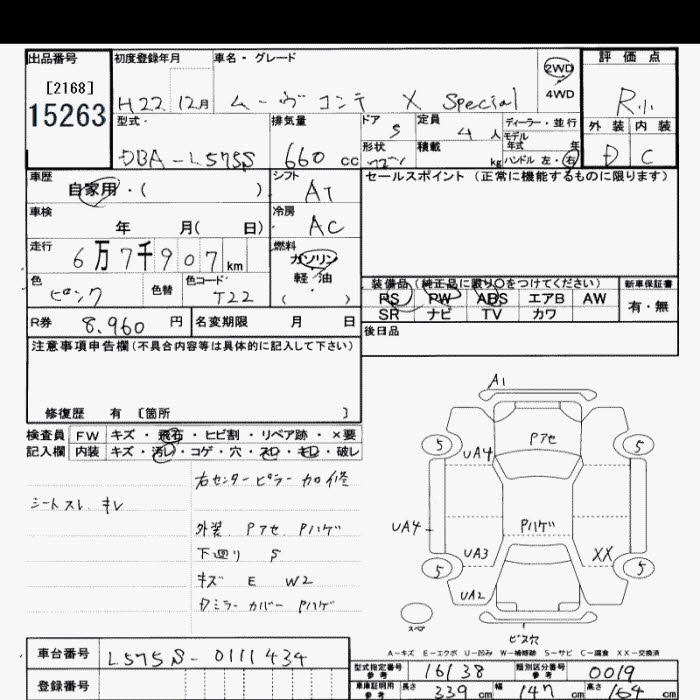 出品番号
[2168]
15263
初度登録年月
H22. 12月
車名・グレード
ムーヴ コンテ X Special
2WD
4WD
評価点
R小
型式
DBA-L575S
排気量
660 cc
ドア
5
定員
4人
ディーラー・並行
モデル年式 年
形状
積載 kg
ハンドル 左・右
外装 内装
D C
車歴
自家用・( )
シフト
AT
車検
年 月( 日)
冷房
AC
走行
6万7千907km
燃料
ガソリン
軽・油
( )
色
ピンク
色替
色コード
T22
R券 8.960 円
名変期限 月 日
セールスポイント(正常に機能するものに限ります)
装備品(純正品に限り○をつけてください)
PS PW ABS エアB AW
SR ナビ TV カワ
新車保証書
有・無
後日品
注意事項申告欄(不具合内容等は具体的に記入して下さい)
修復歴 有 [箇所 ]
検査員記入欄
FW キズ・飛石・ヒビ割・リペア跡・×要
内装 キズ・汚レ・コゲ・穴・スレ・キレ・破レ
シートスレ キレ
右センターピラー加修
外装 Pアセ Pハゲ
下廻り S
キズ E W2
ドアミラーカバー Pハゲ
A1
Pアセ
5
5
UA4
UA4
Pハゲ
UA3
XX
5
5
UA2
スペア
ビス穴
A-キズ E-エクボ U-凹み W-補修跡 S-サビ C-腐食 XX-交換済
車台番号 L575S-0111434
登録番号
型式指定番号 参考 16138
類別区分番号 参考 0019
車庫証明用 参考 長さ 339 cm 幅 147 cm 高さ 164 cm